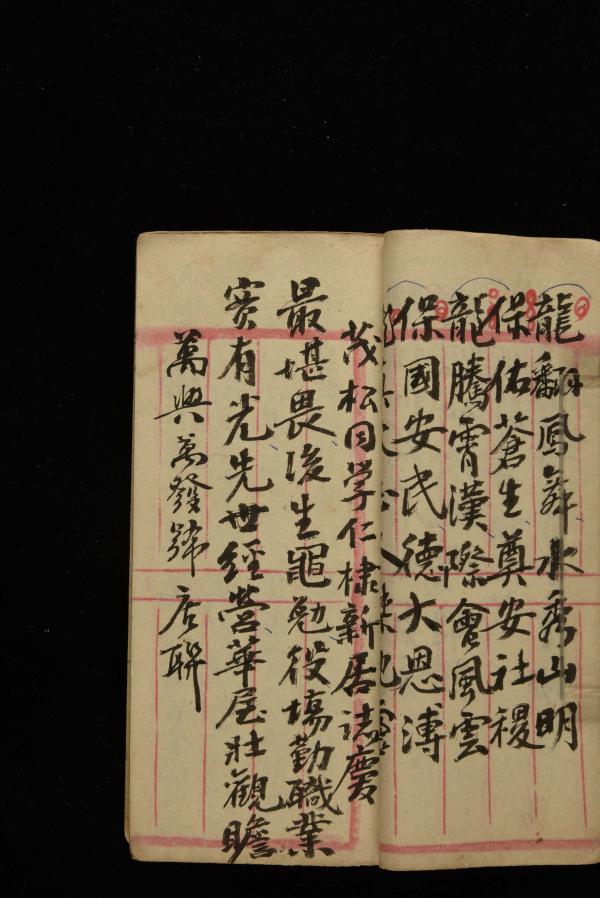 龍翻鳳舞水秀山明
保佑蒼生奠安社稷
龍騰霄漢際會風雲
保國安民德大恩溥
茂松同學仁棣新居誌慶
最堪畏後生黽勉役場勤職業
實有光先世經營華屋壯觀瞻
萬興萬發號店聯